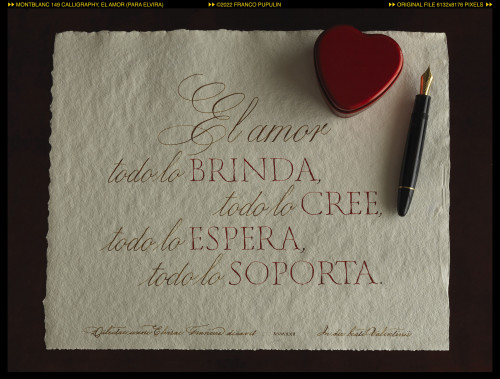 MONTBLANC 149 CALLIGRAPHY, EL AMOR (PARA ELVIRA) ©2022 FRANCO PUPULIN ORIGINAL FILE 8132x8176 PIXELS
El amor
todo lo BRINDA,
todo lo CREE,
todo lo ESPERA,
todo lo SOPORTA.
Elvira Francus MMXXII Valentini